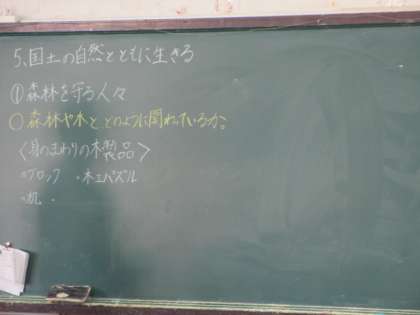 5、国土の自然とともに生きる
①森林を守る人々
○森林や木と、どのように関わっているか。
〈身のまわりの木製品〉
・ブロック ・木工パズル
・机 ・